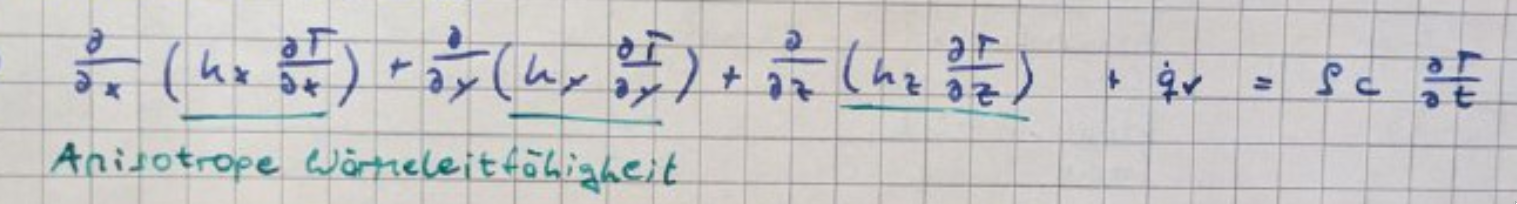 ∂/∂x (k_x ∂T/∂x) + ∂/∂y (k_y ∂T/∂y) + ∂/∂z (k_z ∂T/∂z) + q̇_v = ρ c ∂T/∂t
Anisotrope Wärmeleitfähigkeit